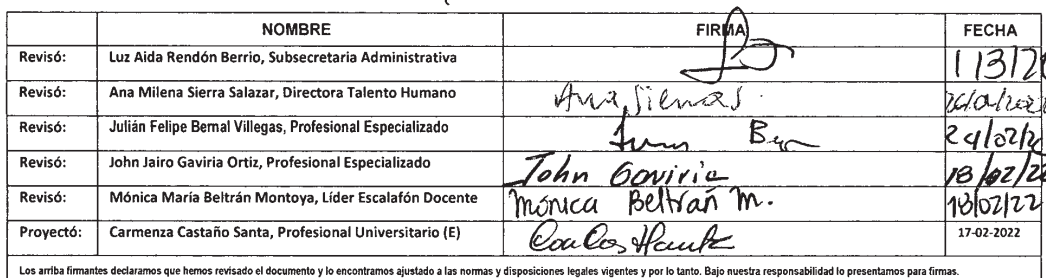 NOMBRE FIRMA FECHA
Revisó: Luz Aida Rendón Berrio, Subsecretaria Administrativa
Revisó: Ana Milena Sierra Salazar, Directora Talento Humano Ana Sierra S.
Revisó: Julián Felipe Bernal Villegas, Profesional Especializado
Revisó: John Jairo Gaviria Ortiz, Profesional Especializado John Gaviria 18/02/22
Revisó: Mónica María Beltrán Montoya, Líder Escalafón Docente Mónica Beltrán M. 18/02/22
Proyectó: Carmenza Castaño Santa, Profesional Universitario (E) 17-02-2022
Los arriba firmantes declaramos que hemos revisado el documento y lo encontramos ajustado a las normas y disposiciones legales vigentes y por lo tanto. Bajo nuestra responsabilidad lo presentamos para firmas.